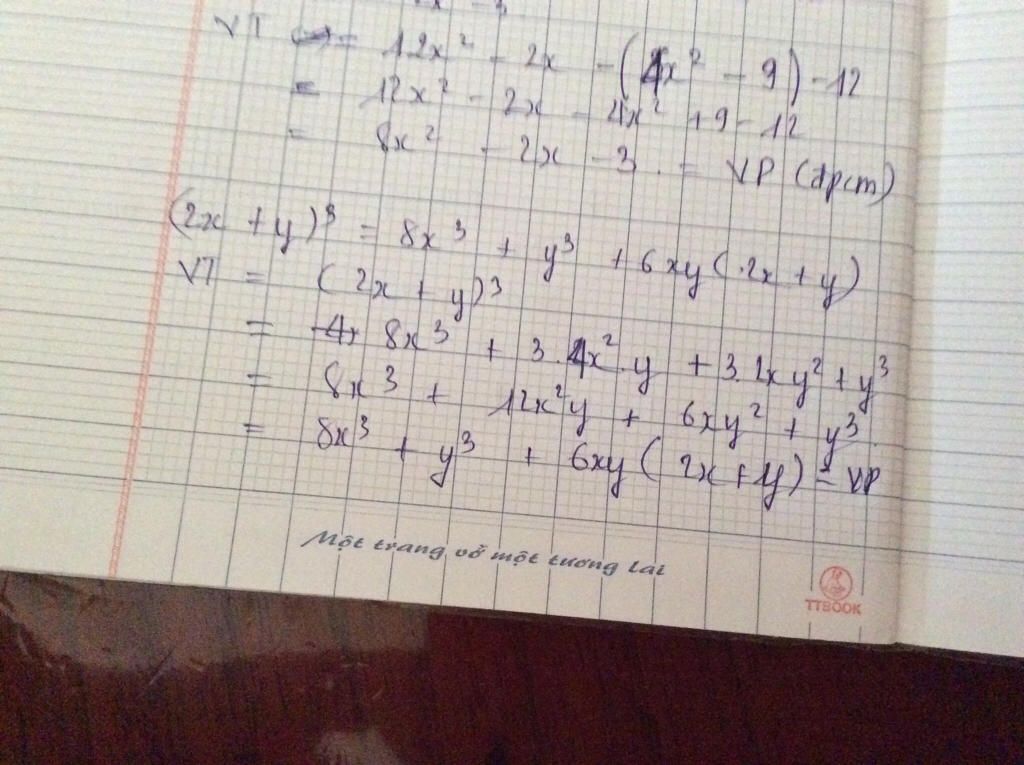 VT = 12x² - 2x - (4x² - 9) - 12
= 12x² - 2x - 4x² + 9 - 12
= 8x² - 2x - 3 = VP (đpcm)
(2x + y)³ = 8x³ + y³ + 6xy(2x + y)
VT = (2x + y)³
= 8x³ + 3.4x².y + 3.2xy² + y³
= 8x³ + 12x²y + 6xy² + y³
= 8x³ + y³ + 6xy(2x + y) = VP
Một trang vở một tương lai
TTBOOK